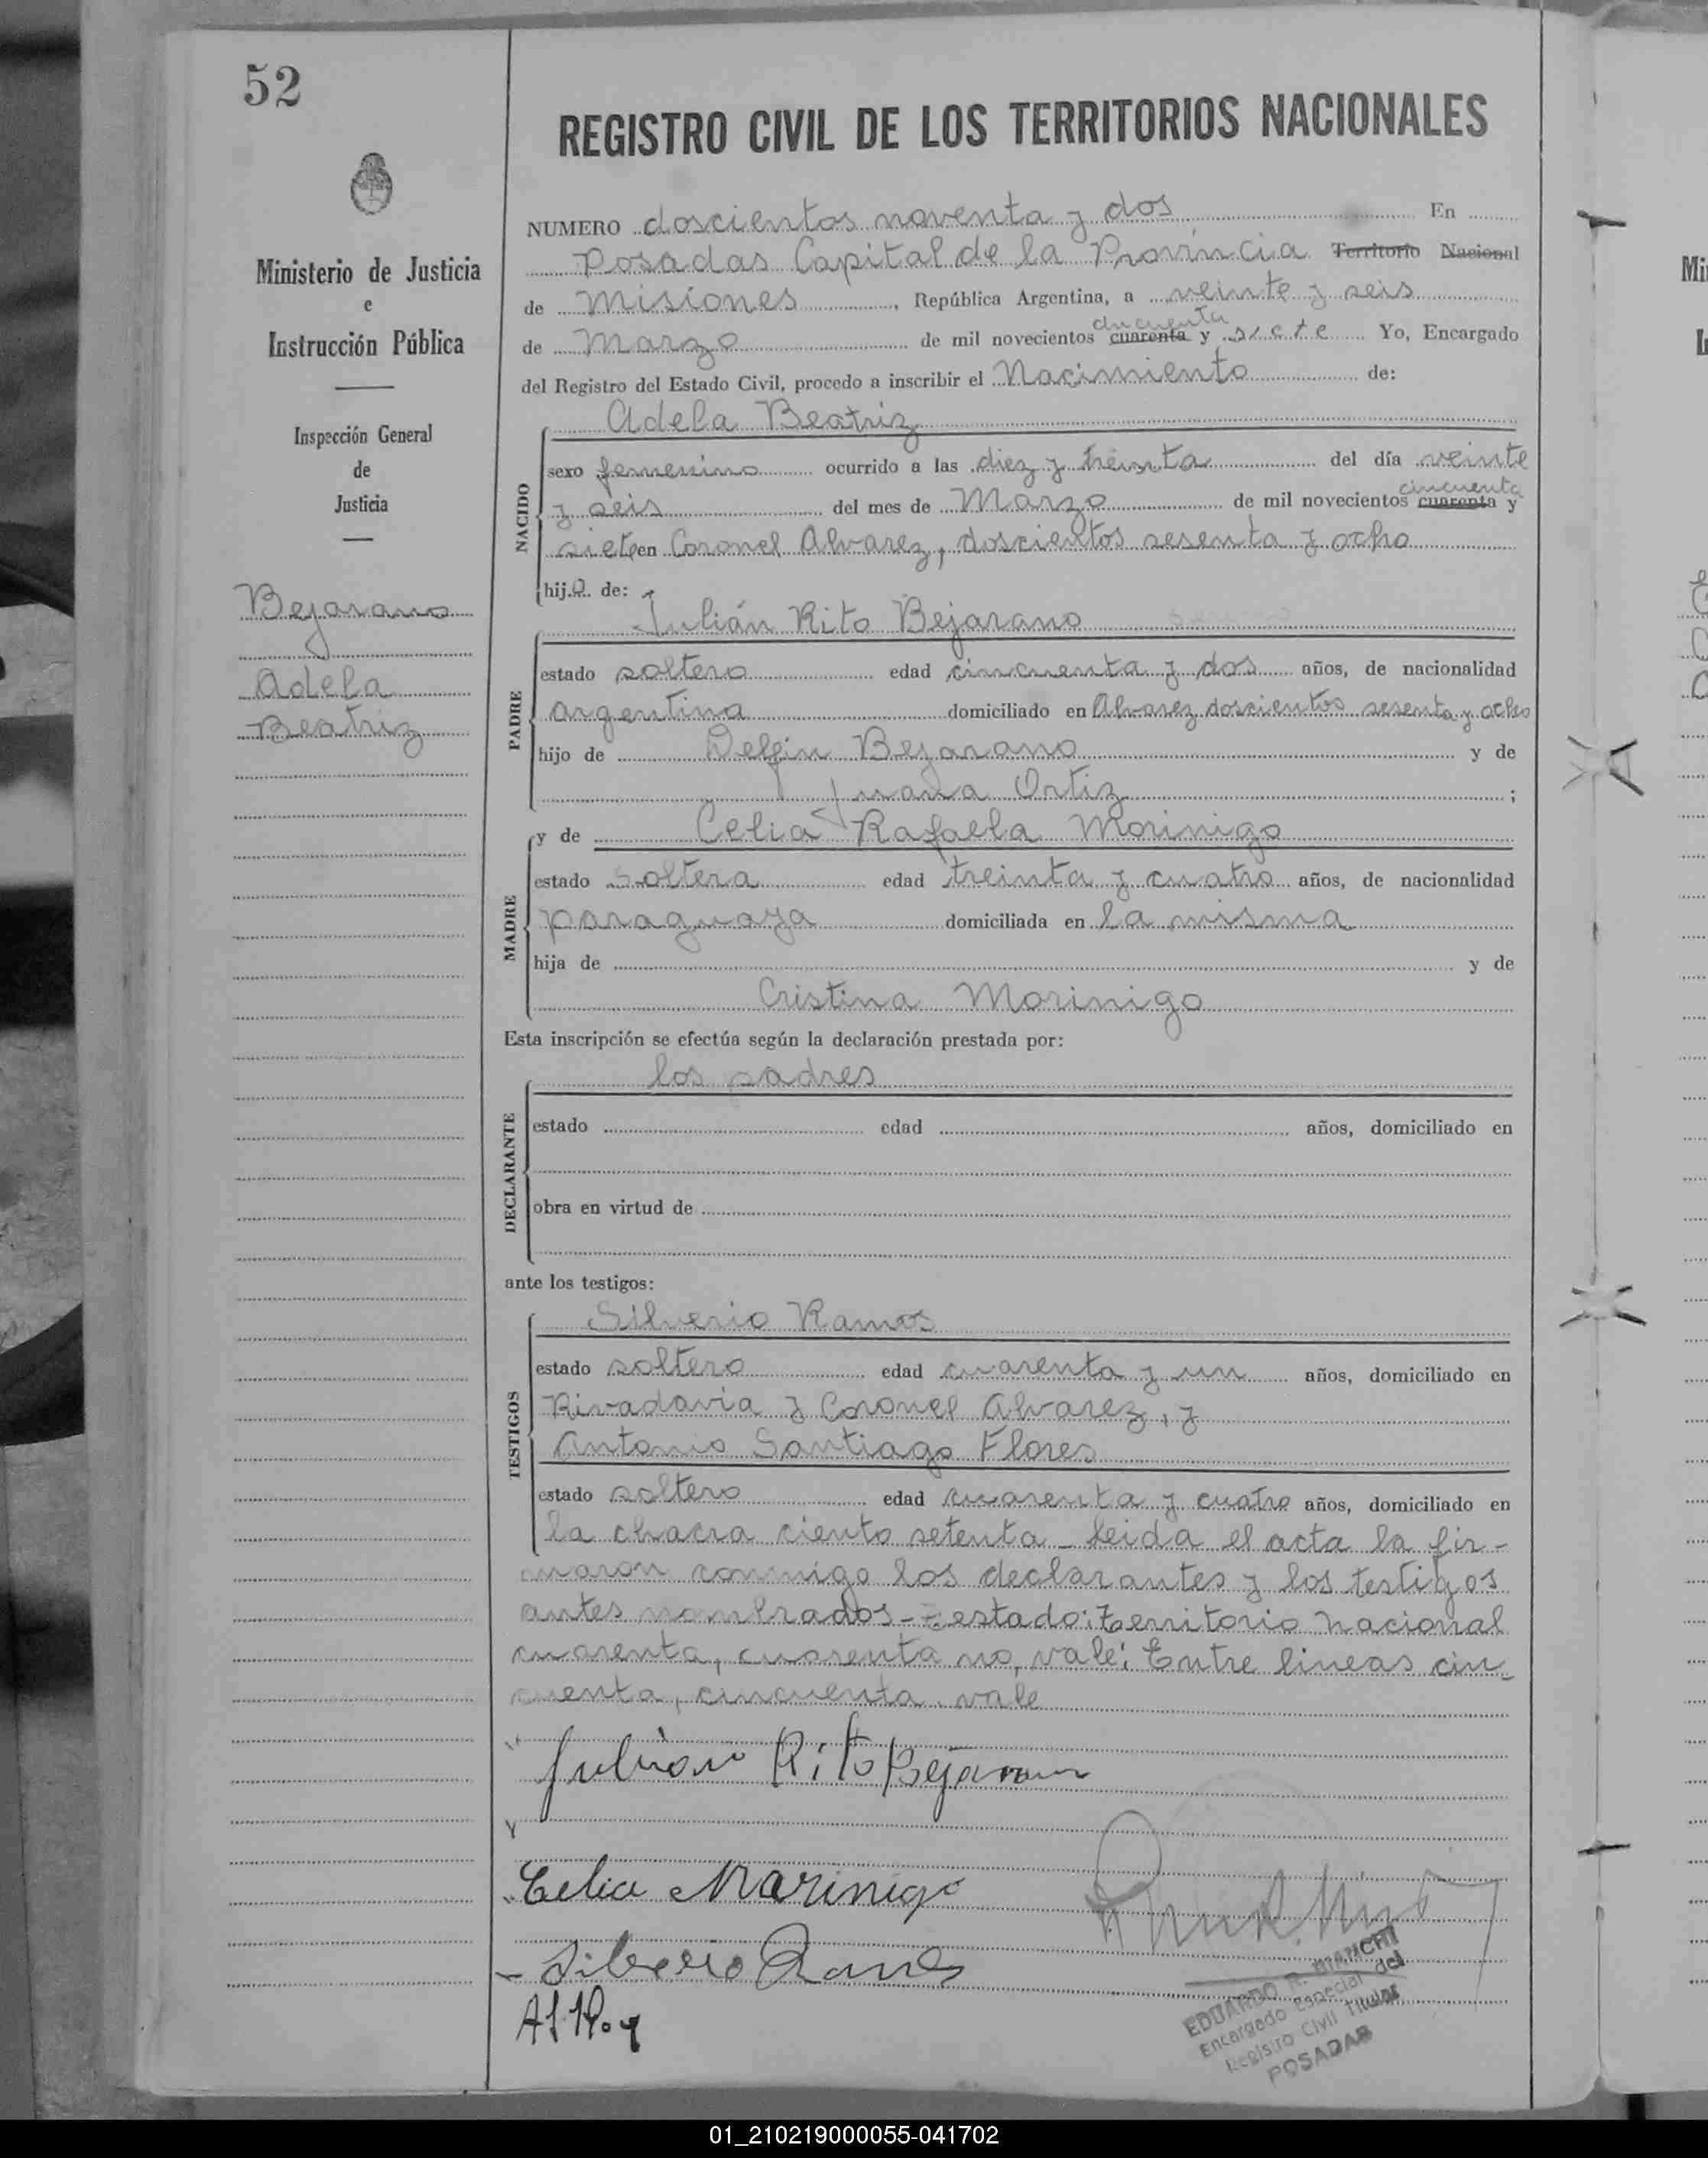 52
REGISTRO CIVIL DE LOS TERRITORIOS NACIONALES
Ministerio de Justicia
e
Instrucción Pública
Inspección General
de
Justicia
Bejarano
Adela
Beatriz
NUMERO doscientos noventa y dos En
Posadas Capital de la Provincia Territorio Nacional
de Misiones, República Argentina, a veinte y seis
cincuenta
de Marzo de mil novecientos cuarenta y siete Yo, Encargado
del Registro del Estado Civil, procedo a inscribir el Nacimiento de:
Adela Beatriz
NACIDO
sexo femenino ocurrido a las diez y treinta del día veinte
cincuenta
y seis del mes de Marzo de mil novecientos cuarenta y
siete en Coronel Alvarez, doscientos sesenta y ocho
hija de:
Julián Rito Bejarano
PADRE
estado soltero edad cincuenta y dos años, de nacionalidad
argentina domiciliado en Alvarez doscientos sesenta y ocho
hijo de Delfin Bejarano y de
Juana Ortiz ;
y de Celia Rafaela Morinigo
MADRE
estado soltera edad treinta y cuatro años, de nacionalidad
paraguaya domiciliada en la misma
hija de y de
Cristina Morinigo
Esta inscripción se efectúa según la declaración prestada por:
los padres
DECLARANTE
estado edad años, domiciliado en
obra en virtud de
ante los testigos:
Silverio Ramos
TESTIGOS
estado soltero edad cuarenta y un años, domiciliado en
Rivadavia y Coronel Alvarez, y
Antonio Santiago Flores
estado soltero edad cuarenta y cuatro años, domiciliado en
la chacra ciento setenta - Leida el acta la fir-
maron conmigo los declarantes y los testigos
antes nombrados - Testado: Territorio Nacional
cuarenta, cuarenta no, vale: Entre lineas cin-
cuenta, cincuenta, vale
Julian Rito Bejarano
Celia Marinigo
Silverio Ramos
EDUARDO R. BIANCHI
Encargado Especial del
Registro Civil Titular
POSADAS
01_210219000055-041702